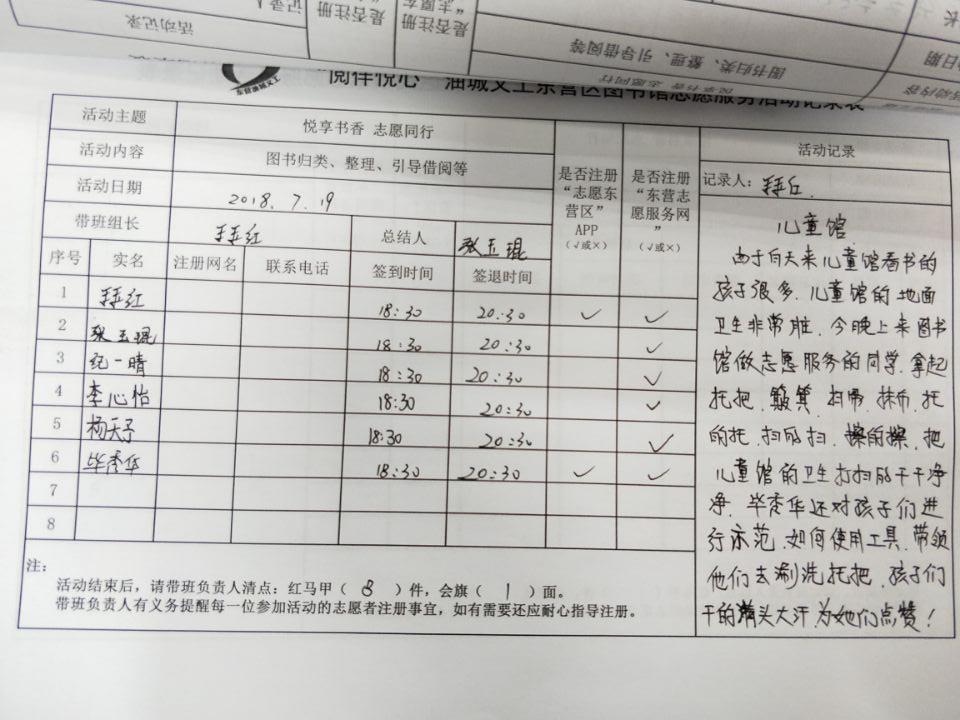 活动记录
是否注册
是否注册
图书归类、整理、引导借阅等
志愿同行
东营油城义工
“阅伴悦心”油城义工东营区图书馆志愿服务活动记录表
活动主题 悦享书香 志愿同行
活动内容 图书归类、整理、引导借阅等
活动日期 2018.7.19
带班组长 总结人 张玉琨
是否注册“志愿东营区”APP（√或×）
是否注册“东营志愿服务网”（√或×）
序号 实名 注册网名 联系电话 签到时间 签退时间
1 18:30 20:30 √ √
2 张玉琨 18:30 20:30 √
3 纪一晴 18:30 20:30 √
4 李心怡 18:30 20:30 √
5 杨天子 18:30 20:30 √
6 毕秀华 18:30 20:30 √ √
7
8
注：
活动结束后，请带班负责人清点：红马甲（ 8 ）件，会旗（ 1 ）面。
带班负责人有义务提醒每一位参加活动的志愿者注册事宜，如有需要还应耐心指导注册。
活动记录
记录人：
儿童馆
由于白天来儿童馆看书的
孩子很多，儿童馆的地面
卫生非常脏，今晚上来图书
馆做志愿服务的同学，拿起
托把、簸箕、扫帚、抹布，托
的托，扫的扫，擦的擦，把
儿童馆的卫生打扫的干干净
净，毕秀华还对孩子们进
行示范，如何使用工具，带领
他们去涮洗托把，孩子们
干的满头大汗为她们点赞！